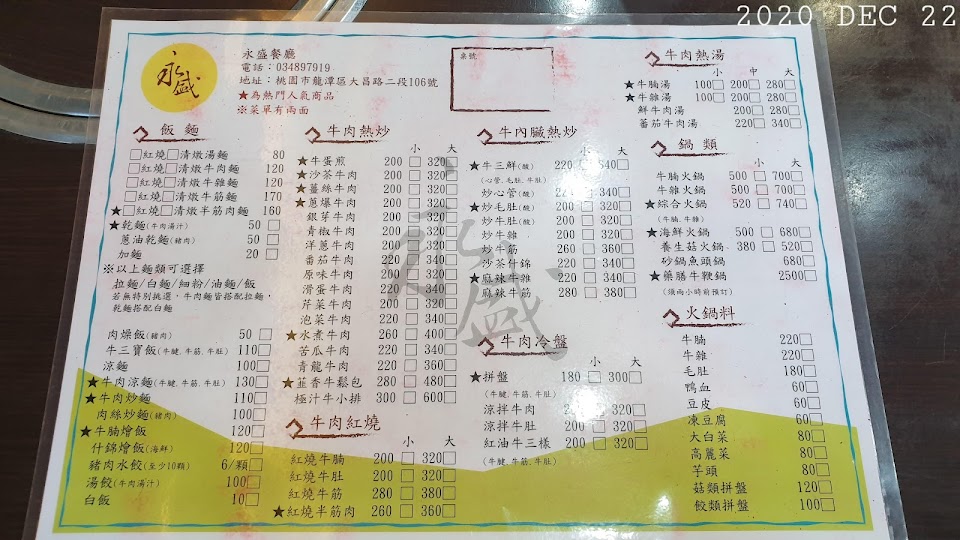 2020 DEC 22
永盛
永盛餐廳
電話：034897919
地址：桃園市龍潭區大昌路二段106號
★為熱門人氣商品
※菜單有兩面
桌號
飯麵
□紅燒□清燉湯麵 80
□紅燒□清燉牛肉麵 120
□紅燒□清燉牛雜麵 120
□紅燒□清燉牛筋麵 170
★□紅燒□清燉半筋肉麵 160
★乾麵(牛肉湯汁) 50 □
蔥油乾麵(豬肉) 50 □
加麵 20 □
※以上麵類可選擇
拉麵/白麵/細粉/油麵/飯
若無特別挑選，牛肉麵皆搭配拉麵，
乾麵搭配白麵
肉燥飯(豬肉) 50 □
牛三寶飯(牛腱.牛筋.牛肚) 110□
涼麵 100□
★牛肉涼麵(牛腱.牛筋.牛肚) 130□
★牛肉炒麵 110□
肉絲炒麵(豬肉) 100□
★牛腩燴飯 120□
什錦燴飯(海鮮) 120□
豬肉水餃(至少10顆) 6/顆□
湯餃(牛肉湯汁) 100□
白飯 10□
牛肉熱炒
小 大
★牛蛋煎 200 □ 320□
★沙茶牛肉 200 □ 320□
★薑絲牛肉 200 □ 320□
★蔥爆牛肉 200 □ 320□
銀芽牛肉 200 □ 320□
青椒牛肉 200 □ 320□
洋蔥牛肉 200 □ 320□
番茄牛肉 200 □ 320□
原味牛肉 200 □ 320□
滑蛋牛肉 200 □ 320□
芹菜牛肉 200 □ 320□
泡菜牛肉 220 □ 340□
★水煮牛肉 260 □ 400□
苦瓜牛肉 220 □ 340□
青龍牛肉 220 □ 360□
★韮香牛鬆包 280 □ 480□
極汁牛小排 300 □ 600□
牛肉紅燒
小 大
紅燒牛腩 200 □ 320□
紅燒牛肚 200 □ 320□
紅燒牛筋 280 □ 380□
★紅燒半筋肉 260 □ 360□
牛內臟熱炒
小 大
★牛三鮮(酸) 220 □ 340□
(心管.毛肚.牛肚)
炒心管(酸) 220 □ 340□
★炒毛肚(酸) 200 □ 320□
炒牛肚(酸) 200 □ 320□
炒牛雜 200 □ 320□
炒牛筋 260 □ 360□
沙茶什錦 220 □ 340□
★麻辣牛雜 220 □ 340□
麻辣牛筋 280 □ 380□
永盛
牛肉冷盤
小 大
★拼盤 180 □ 300□
(牛腱.牛筋.牛肚)
涼拌牛肉 200 □ 320□
涼拌牛肚 200 □ 320□
紅油牛三樣 200 □ 320□
(牛腱.牛筋.牛肚)
牛肉熱湯
小 中 大
★牛腩湯 100□ 200□ 280□
★牛雜湯 100□ 200□ 280□
鮮牛肉湯 200□ 280□
蕃茄牛肉湯 220□ 340□
鍋類
小 大
牛腩火鍋 500 □ 700□
牛雜火鍋 500 □ 700□
★綜合火鍋 520 □ 740□
(牛腩.牛雜)
★海鮮火鍋 500 □ 680□
養生菇火鍋 380 □ 520□
砂鍋魚頭鍋 680□
★藥膳牛鞭鍋 2500□
(須兩小時前預訂)
火鍋料
牛腩 220□
牛雜 220□
毛肚 180□
鴨血 60□
豆皮 60□
凍豆腐 60□
大白菜 80□
高麗菜 80□
芋頭 80□
菇類拼盤 120□
餃類拼盤 100□